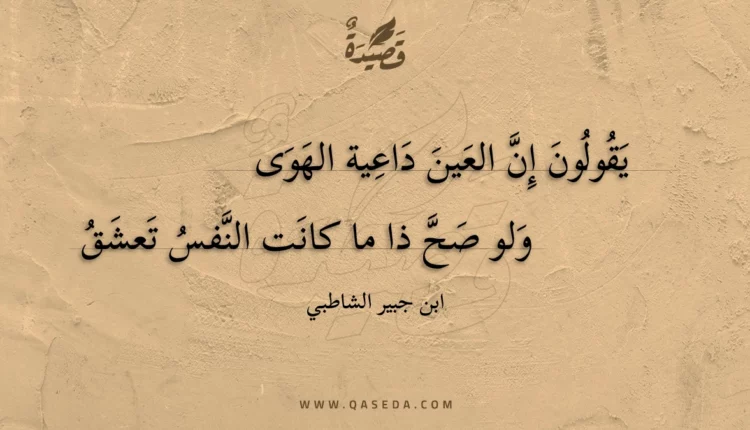 قَصِيدَةٌ
يَقُولُونَ إِنَّ العَينَ دَاعِية الهَوَى
وَلو صَحَّ ذا ما كانَت النَّفسُ تَعشَقُ
ابن جبير الشاطبي
WWW.QASEDA.COM